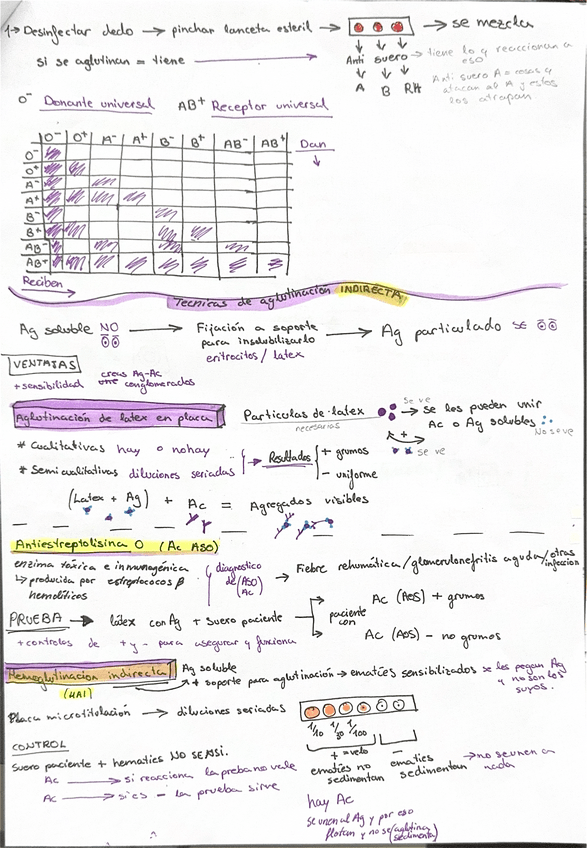 1→ Desinfectar dedo → pinchar lanceta esteril → → se mezcla
si se aglutinan = tiene → Anti suero → tiene lo q reaccionan a eso
A B RH
Anti suero A = cosas q atacan al A y estos los atrapan
O⁻ Donante universal AB⁺ Receptor universal
O⁻ O⁺ A⁻ A⁺ B⁻ B⁺ AB⁻ AB⁺ Dan ↓
O⁻
O⁺
A⁻
A⁺
B⁻
B⁺
AB⁻
AB⁺
Reciben →
Tecnicas de aglutinacion INDIRECTA
Ag soluble NO → Fijación a soporte para insolubilizarlo → Ag particulado se
eritrocitos / latex
VENTAJAS
+ sensibilidad creas Ag-Ac conglomerados
Aglutinación de latex en placa
Particulas de latex → se les pueden unir
necesarias Se ve
Ac o Ag solubles
No se ve
se ve
* Cualitativas hay o no hay
* Semicualitativas diluciones seriadas
→ Resultados + grumos
− uniforme
(Latex + Ag) + Ac = Agregados visibles
Antiestreptolisina O (Ac ASO)
enzima toxica e inmunogénica
↳ producida por estreptococos β hemolíticos
diagnostico de (ASO) Ac → Fiebre rehumática/glomerulonefritis aguda/otras infeccion
PRUEBA → látex con Ag + suero paciente → paciente con
Ac (AOS) + grumos
Ac (AOS) − no grumos
+ controles de + y − para asegurar q funciona
Hemoglutinacion indirecta
(HAI)
Ag soluble
+ soporte para aglutinación → ematíes sensibilizados se les pegan Ag y no son los suyos.
Placa microtitulación → diluciones seriadas
1/10 1/50 1/100
+ = velo
ematíes no sedimentan
−
ematies sedimentan → no se unen a nada
CONTROL
suero paciente + hematies NO SENSI.
Ac → si reacciona la prueba no vale
Ac → si es − la prueba sirve
hay Ac
se unen al Ag y por eso
flotan y no se (aglutina sedimenta)